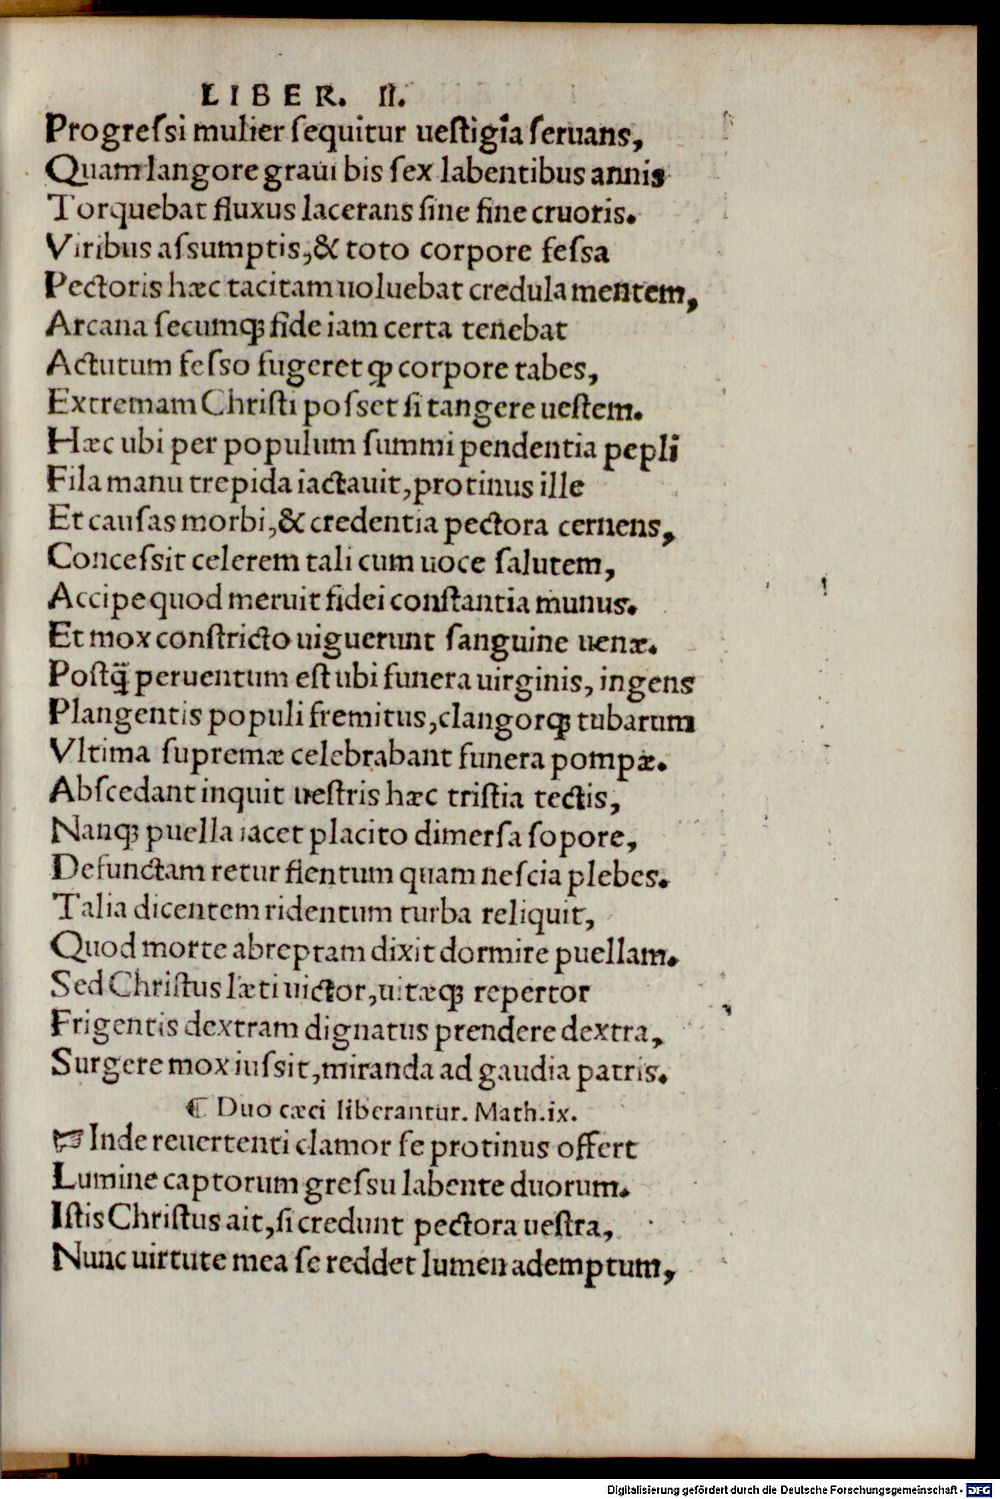 LIBER. II.
Progreſsi mulier ſequitur ueſtigia ſeruans,
Quam langore graui bis ſex labentibus annis
Torquebat fluxus lacerans ſine fine cruoris.
Viribus aſsumptis,& toto corpore feſsa
Pectoris hæc tacitam uoluebat credula mentem,
Arcana ſecumq; fide iam certa tenebat
Actutum feſso fugeret ꝙ corpore tabes,
Extremam Chriſti poſset ſi tangere ueſtem.
Hæc ubi per populum ſummi pendentia pepli
Fila manu trepida iactauit,protinus ille
Et cauſas morbi,& credentia pectora cernens,
Conceſsit celerem tali cum uoce ſalutem,
Accipe quod meruit fidei conſtantia munus.
Et mox conſtricto uiguerunt ſanguine uenæ.
Poſtq̃ peruentum eſt ubi funera uirginis, ingens
Plangentis populi fremitus,clangorq; tubarum
Vltima ſupremæ celebrabant funera pompæ.
Abſcedant inquit ueſtris hæc triſtia tectis,
Nanq; puella iacet placito dimerſa ſopore,
Defunctam retur flentum quam neſcia plebes.
Talia dicentem ridentum turba reliquit,
Quod morte abreptam dixit dormire puellam.
Sed Chriſtus læti uictor,uitæq; repertor
Frigentis dextram dignatus prendere dextra,
Surgere mox iuſsit,miranda ad gaudia patris.
¶ Duo cæci liberantur. Math.ix.
☞ Inde reuertenti clamor ſe protinus offert
Lumine captorum greſsu labente duorum.
Iſtis Chriſtus ait,ſi credunt pectora ueſtra,
Nunc uirtute mea ſe reddet lumen ademptum,
Digitalisierung gefördert durch die Deutsche Forschungsgemeinschaft - DFG